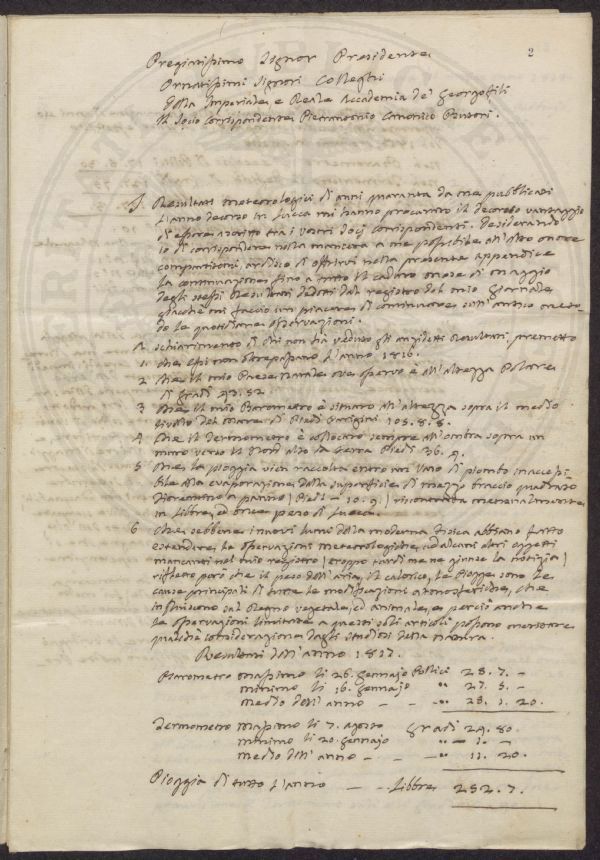 2
Pregiatissimo Signor Presidente
Ornatissimi Signori Colleghi
Della Imperiale e Reale Accademia de' Georgofili
Il Socio Corrispondente Pietrantonio Canonico Butori.
I Resultati meteorologici di anni quaranta da me pubblicati
l'anno decorso in Lucca mi hanno procurato il decoroso vantaggio
di essere ascritto tra i vostri Socj corrispondenti. Desiderando
io di corrispondere nella maniera a me possibile all'alto onore
compartitomi, ardisco di offrirvi nella presente Appendice
la continuazione fino a tutto il caduto mese di Maggio
degli stessi Resultati dedotti dal registro del mio giornale
giacchè mi faccio un piacere di continuare sull'antico meto-
do le quotidiane osservazioni.
A schiarimento di chi non ha veduto gli anzidetti Resultati, premetto
1. che essi non oltrepassano l'anno 1816.
2 che il mio Paese natale ove osservo è all'altezza Polare
di gradi 43. 52
3 che il mio Barometro è situato all'altezza sopra il medio
livello del mare di Piedi Parigini 105. 8. 8.
4 che il Termometro è collocato sempre all'ombra sopra un
muro verso il Nord alto da terra Piedi 36. 4.
5 che la pioggia vien raccolta entro un Vaso di piombo inaccessi-
bile alla evaporazione dalla superficie di mezzo braccio quadrato
Fiorentino a panno (Piedi - 10. 9.) riscontrata mensualmente
in Libbre, ed once peso di Lucca.
6 che sebbene i nuovi lumi della moderna Fisica abbiano fatto
estendere le osservazioni meteorologiche ad alcuni altri oggetti
mancanti nel mio registro (troppo tardi me ne giunse la notizia)
rifletto però che il peso dell'aria, il calorico, le Piogge sono le
cause principali di tutte le modificazioni atmosferiche, che
influiscono sul Regno vegetale, ed animale, e perciò anche
le osservazioni limitate a questi soli articoli possono meritare
qualche considerazione dagli studiosi della natura.
Resultati dell'anno 1817.
Barometro massimo li 26. Gennajo Pollici 28. 7. -
minimo li 16. Gennajo " 27. 3. -
medio dell'anno - - " 28. 1. 20.
Termometro massimo li 7. Agosto Gradi 24. 80.
minimo li 20. Gennajo " - 1. -
medio dell'anno - - - " 11. 20.
Pioggia di tutto l'anno - - Libbre 252. 7.